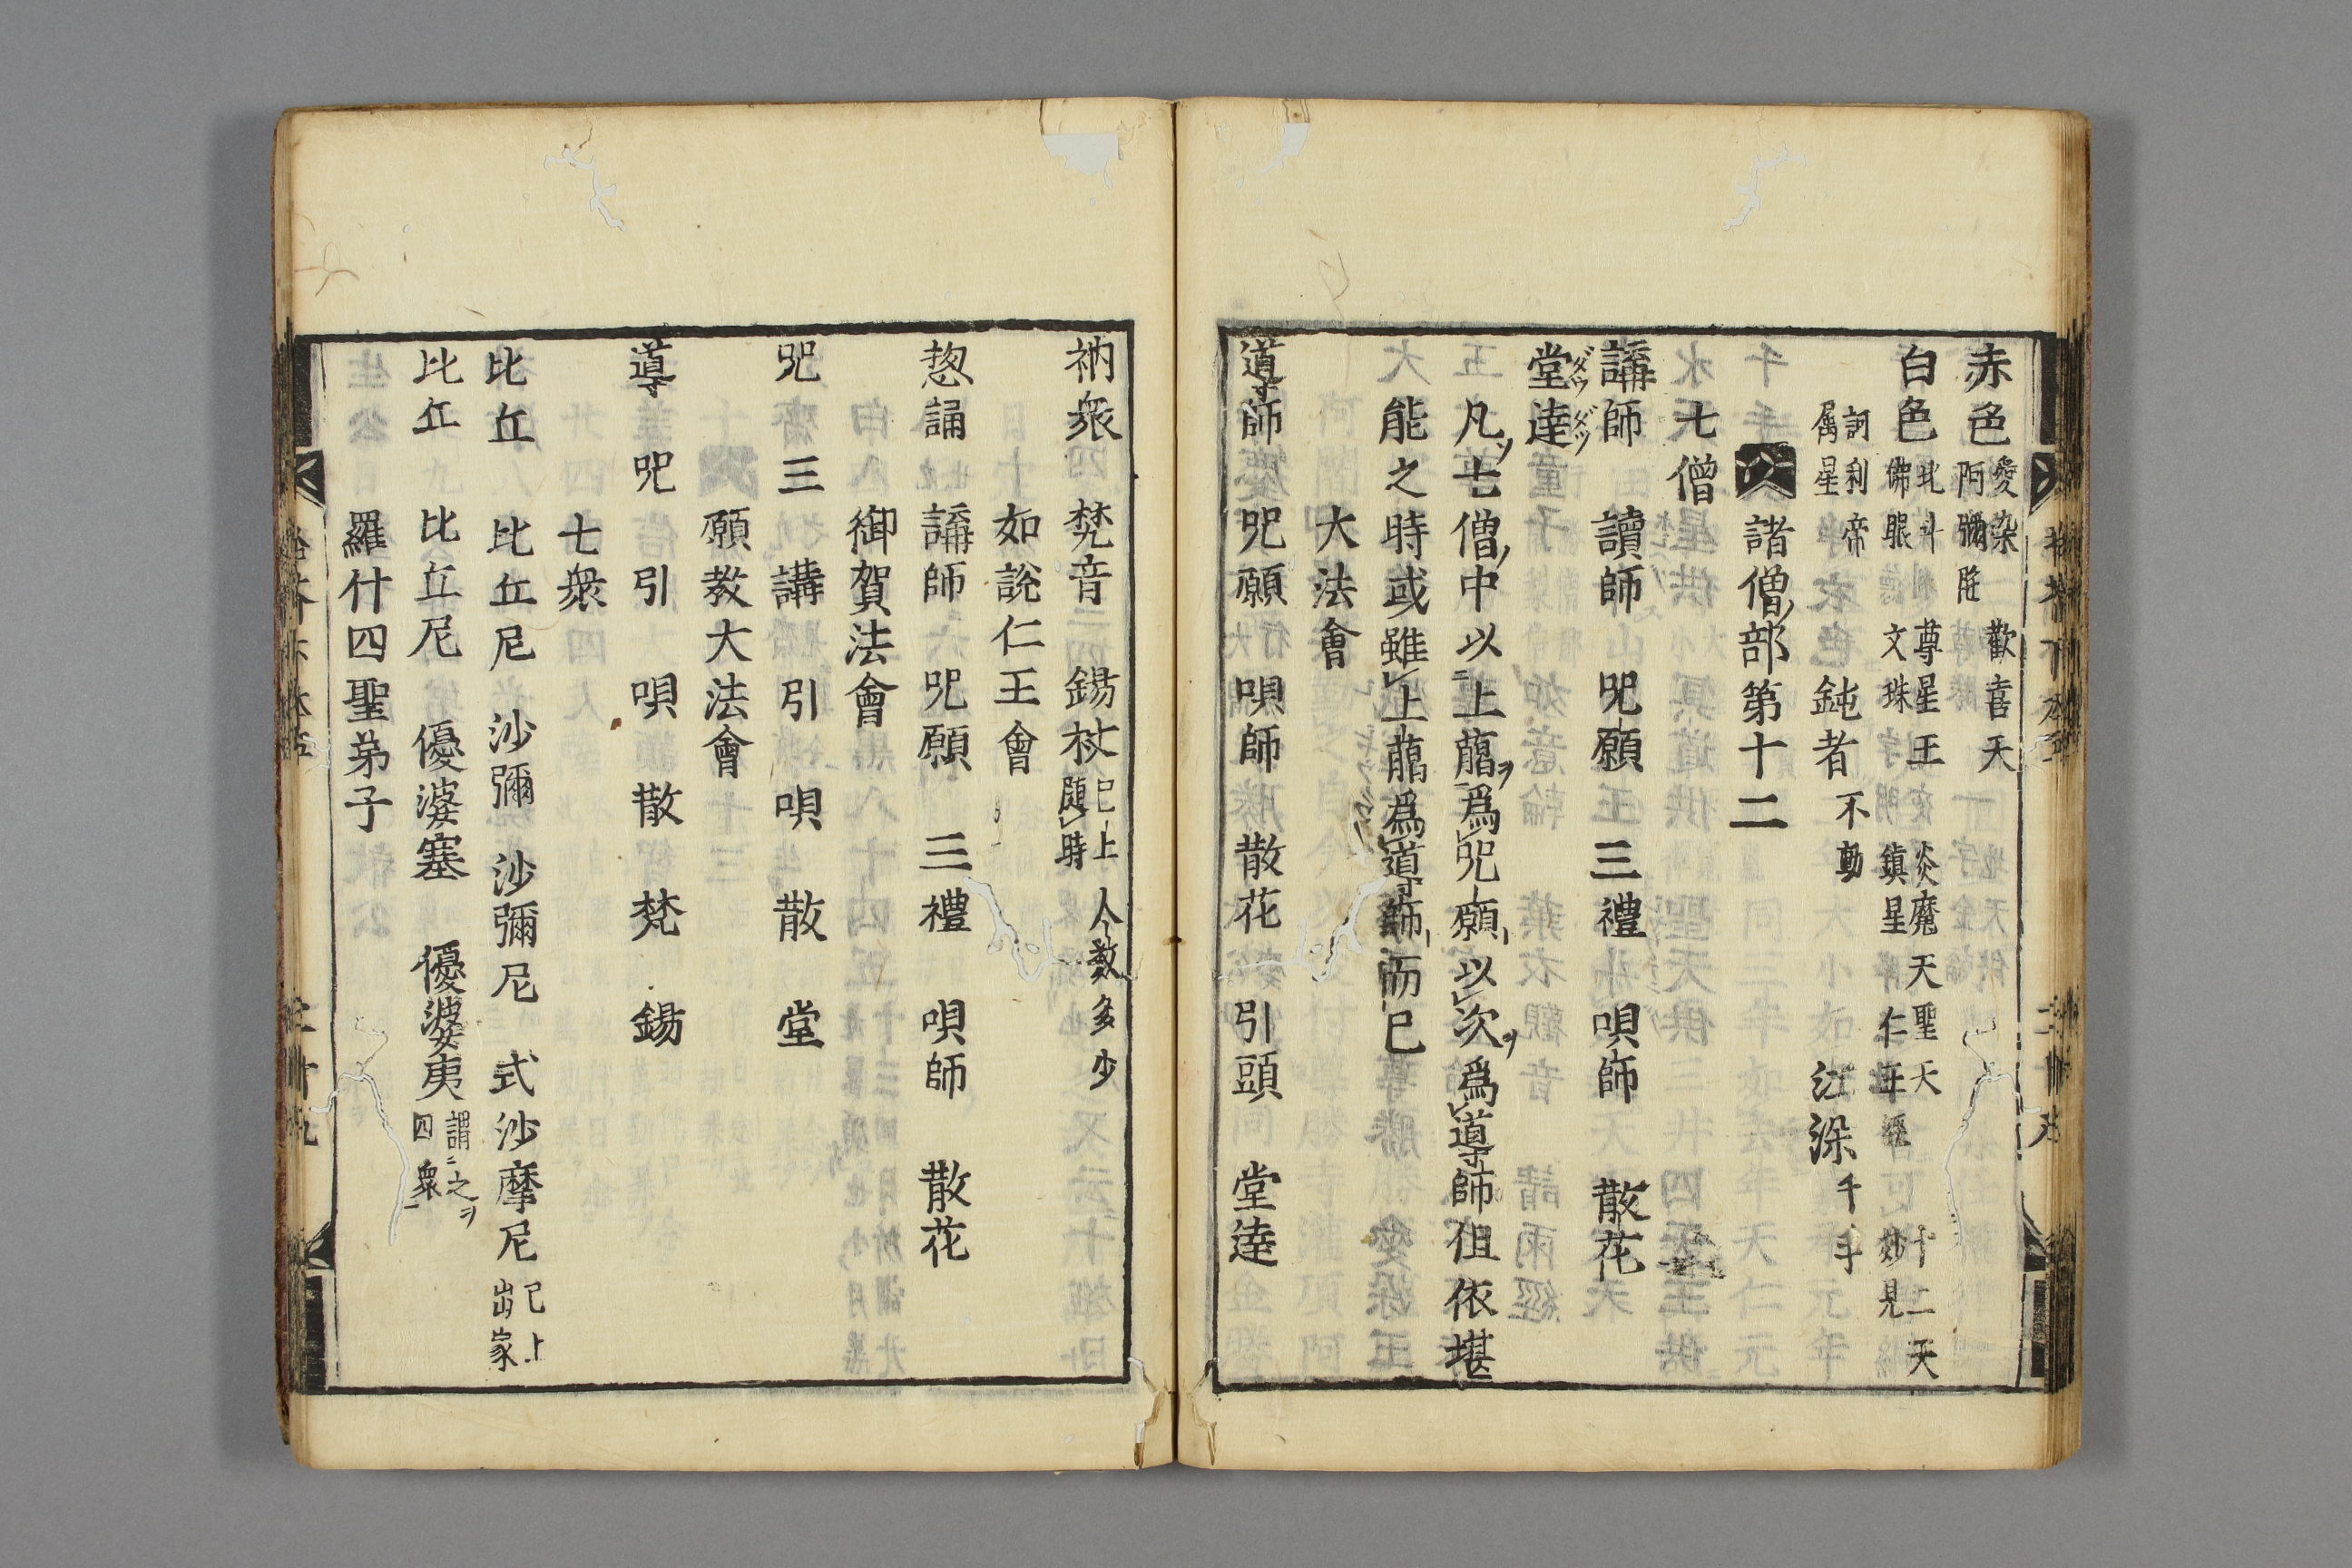 赤色 愛染 歡喜天
阿彌陀
白色 北斗 尊星王 炎魔天 聖天 十二天
佛眼 文珠 鎮星 仁王經 妙見
訶利帝
属星 鈍者 不動 染 千手
諸僧部第十二
七僧
講師 讀師 咒願 三禮 唄師 散花
堂達 ダウダツ
凡ソ七僧ノ中以ニ上﨟ヲ爲咒願以次ヲ爲導師但依堪
能之時或雖上﨟爲導師而已
大法會
導師 咒願 唄師 散花 引頭 堂達
衲衆 梵音 錫杖 已上 人數多少
隨時
如說仁王會
惣誦 講師 咒願 三禮 唄師 散花
御賀法會
咒 三 講 引 唄 散 堂
願教大法會
導 咒 引 唄 散 梵 錫
七衆
比丘 比丘尼 沙彌 沙彌尼 式沙摩尼 已上
出家
比丘 比丘尼 優婆塞 優婆夷 謂之ヲ
四衆
羅什四聖弟子